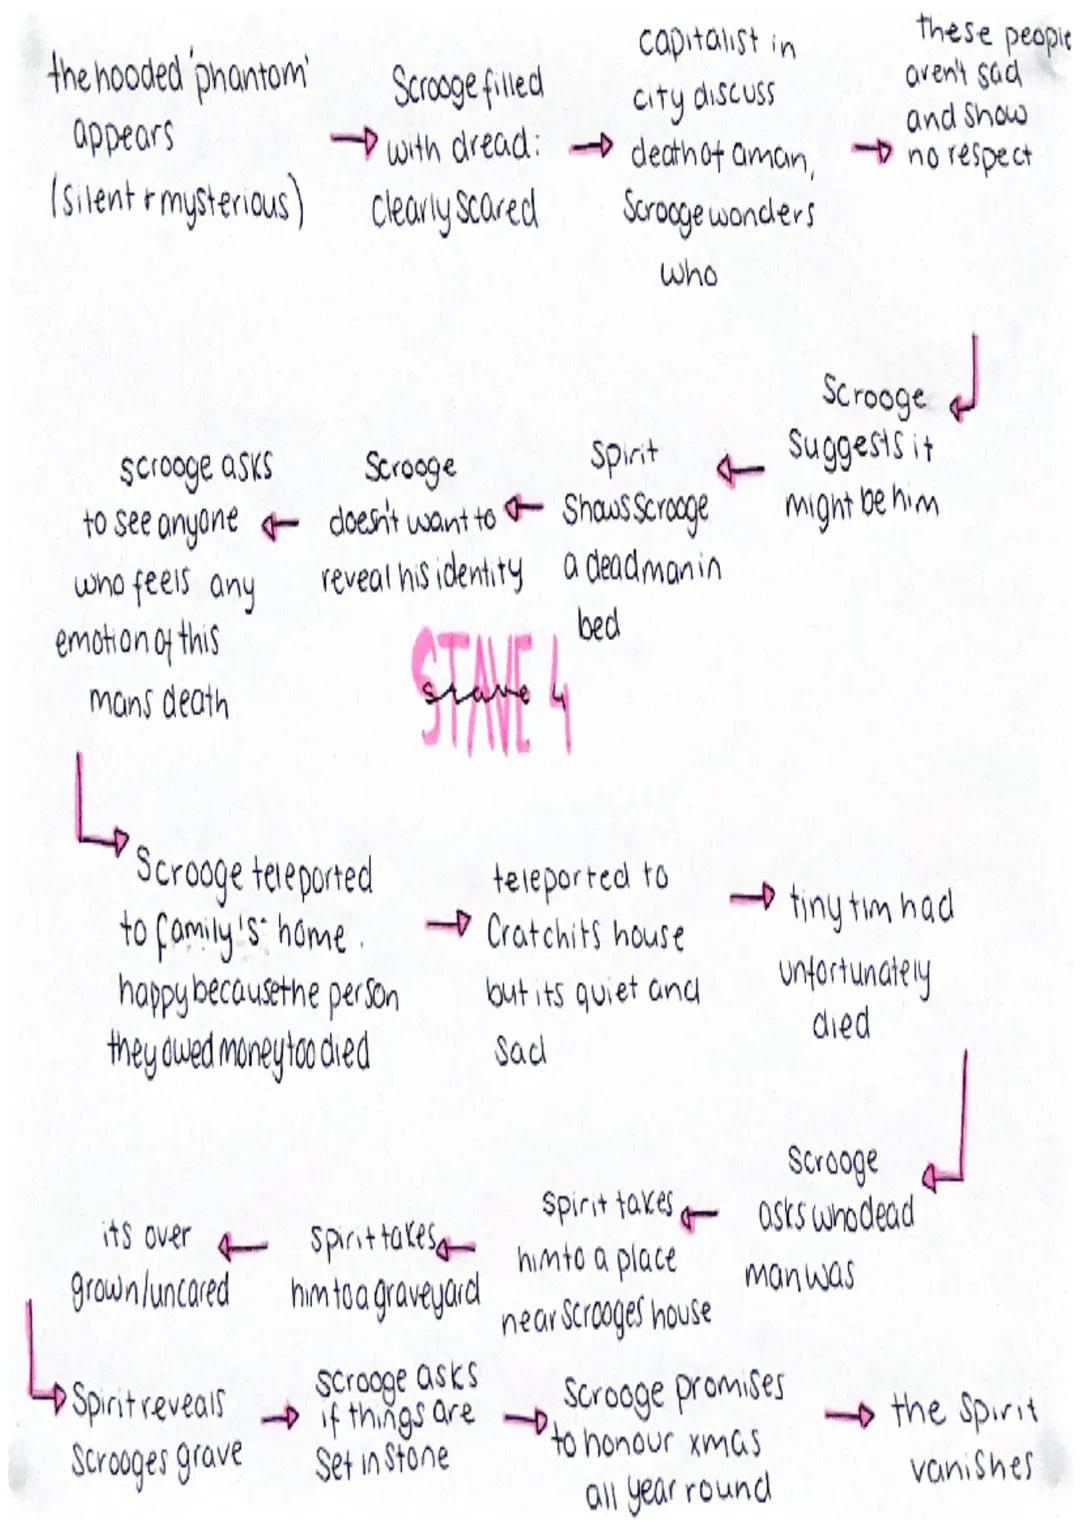 the hooded 'phantom'
appears
(silent + mysterious)
Scrooge filled
with dread:
clearly scared
capitalist in
city discuss
death of a man,
Scrooge wonders
who
these people
aren't sad
and show
no respect
Scrooge
suggests it
might be him
Spirit
shows Scrooge
a dead man in
bed
Scrooge
doesn't want to
reveal his identity
scrooge asks
to see anyone
who feels any
emotion of this
mans death
STAVE 4
stave 4
Scrooge teleported
to family's home.
happy because the person
they owed money too died
teleported to
Cratchits house
but its quiet and
sad
tiny tim had
unfortunately
died
Scrooge
asks who dead
man was
spirit takes
him to a place
near Scrooges house
spirit takes
him to a graveyard
its over
grown/uncared
Spirit reveals
Scrooges grave
scrooge asks
if things are
set in stone
Scrooge promises
to honour xmas
all year round
the spirit
vanishes